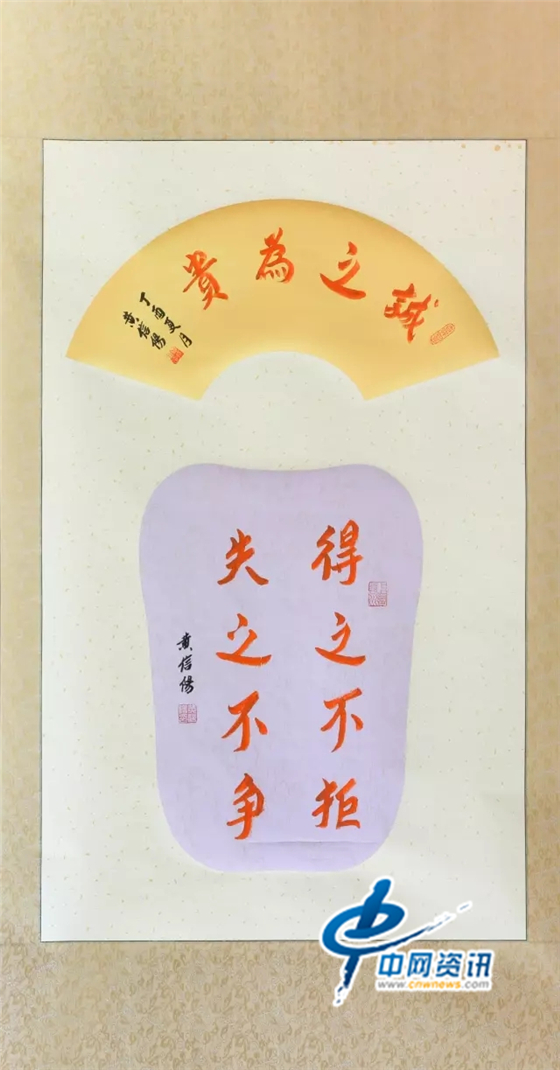 誠之為貴
丁酉夏月
黄信陽
得之不拒
失之不争
黄信陽
中网资讯
www.cnwnews.com